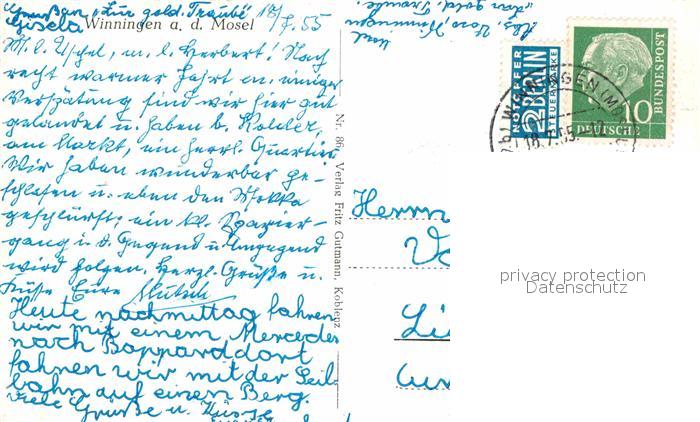 Gasthaus "Zur gold. Traube" 18/7.55
Gisela
Winningen a. d. Mosel
M. l. Uschel, m. l. Herbert! Nach
recht warmer Fahrt m. einiger
Verspätung sind wir hier gut
gelandet u. haben b.
am Markt, ein herrl. Quartier.
Wir haben wunderbar ge-
schlafen u. eben den Mokka
geschlürft; ein kl. Spazier-
gang i. d. Gegend u. Umgegend
wird folgen. Herzl. Grüße u.
Küsse Eure Mutsch
Heute nachmittag fahren
wir mit einem Mercedes
nach Boppard dort
fahren wir mit der Seil-
bahn auf einen Berg.
Viele Grüße u. Küsse
Nr. 86 Verlag Fritz Gutmann, Koblenz
Abs.
"Zur gold. Traube"
NOTOPFER
2 BERLIN
STEUERMARKE
DEUTSCHE
BUNDESPOST
10
WINNINGEN (MOSEL)
18.7.55
Herrn
privacy protection
Datenschutz